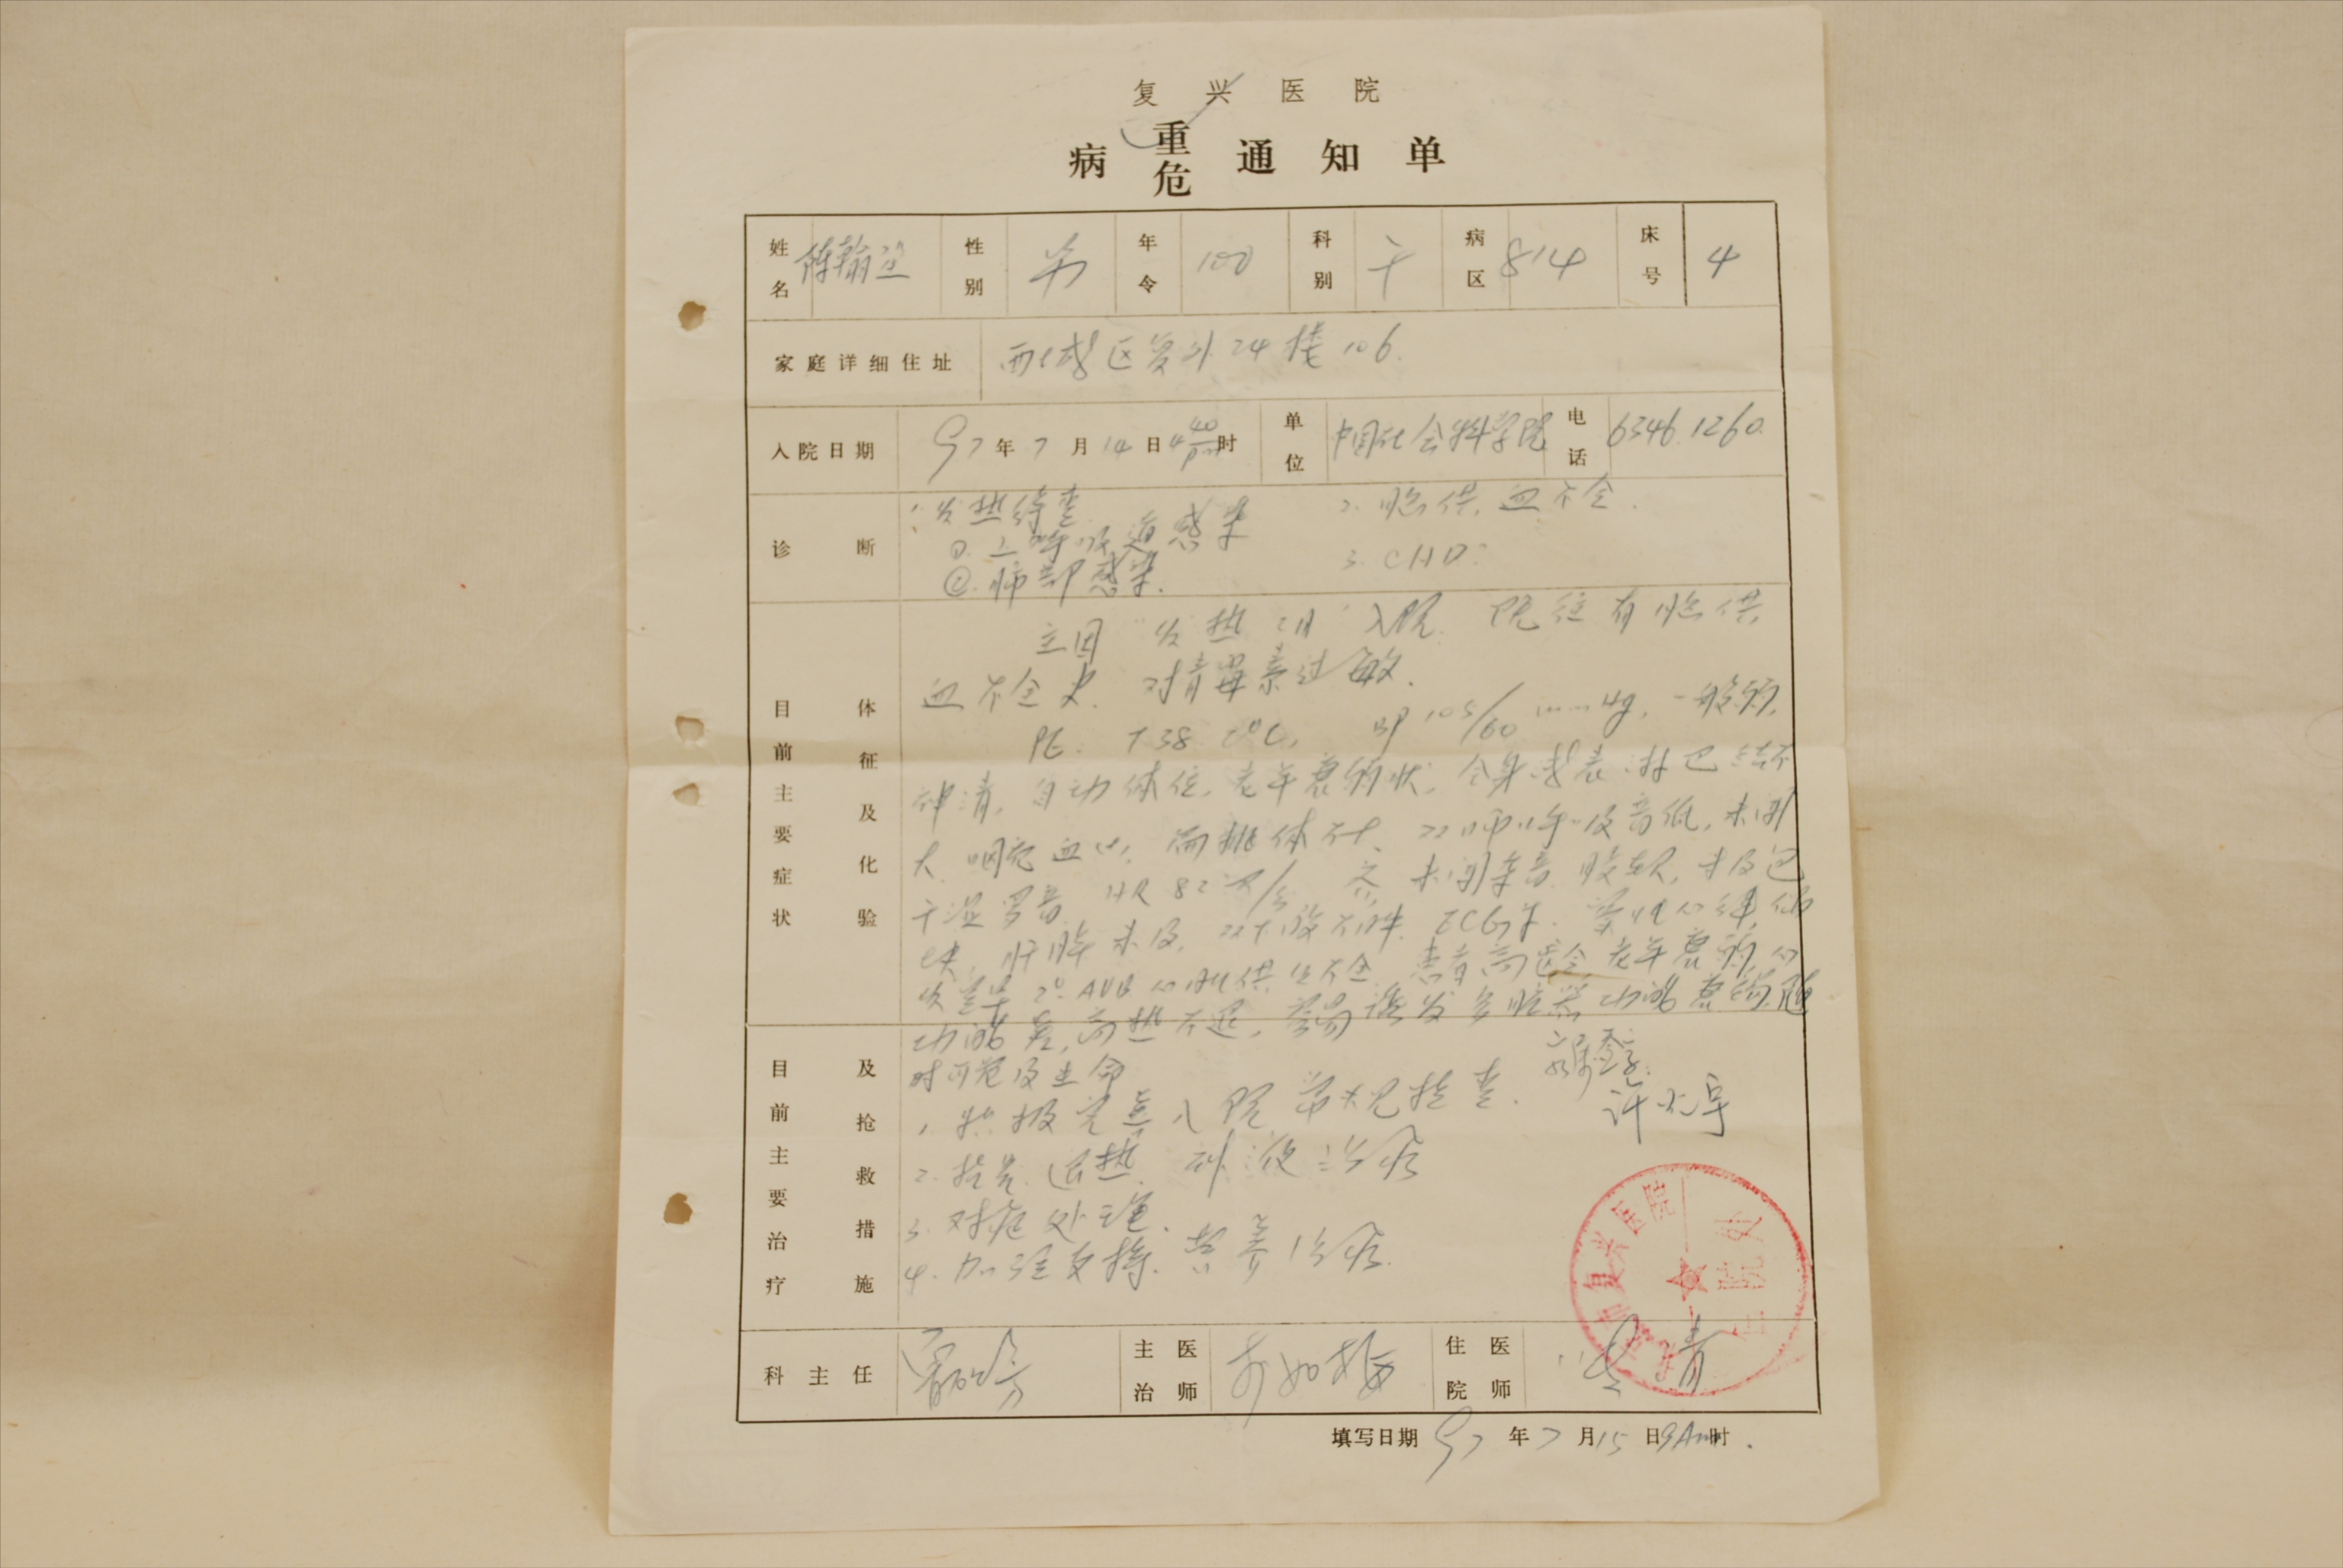 复兴医院
病重危通知单
姓名 陈翰笙 性别 男 年令 100 科别 干 病区 814 床号 4
家庭详细住址 西城区复外24楼106.
入院日期 97年7月14日4 40 pm时 单位 中国社会科学院 电话 6346 1260.
诊断 1. 发热待查 2. 脑供血不全.
①. 上呼吸道感染
②. 肺部感染. 3. CHD.
目前主要症状 体征及化验
主因“发热2日”入院. 既往有脑供
血不全史. 对青霉素过敏.
PE: T38.2°C, BP 105/60 mmHg, 一般弱,
神清, 自动体位, 老年衰弱状, 全身浅表淋巴结不
大. 咽充血(+), 扁桃体不大. 双肺呼吸音低, 未闻
干湿罗音. HR 82次/分 齐 未闻杂音. 腹软, 未及包
块, 肝脾未及. 双下肢不肿. ECG示: 窦性心律,
2° AVB 心肌供血不全. 患者高龄, 老年衰弱, 心
功能差, 高热不退, 容易诱发多脏器功能衰竭, 随
时可危及生命.
目前主要治疗 及抢救措施
1. 积极完善入院常规检查.
2. 抗炎. 退热. 补液治疗
3. 对症处理.
4. 加强支持. 营养治疗.
北京市复兴医院
住院处
科主任 主治医师 住院医师
填写日期 97年7月15日9Am时.